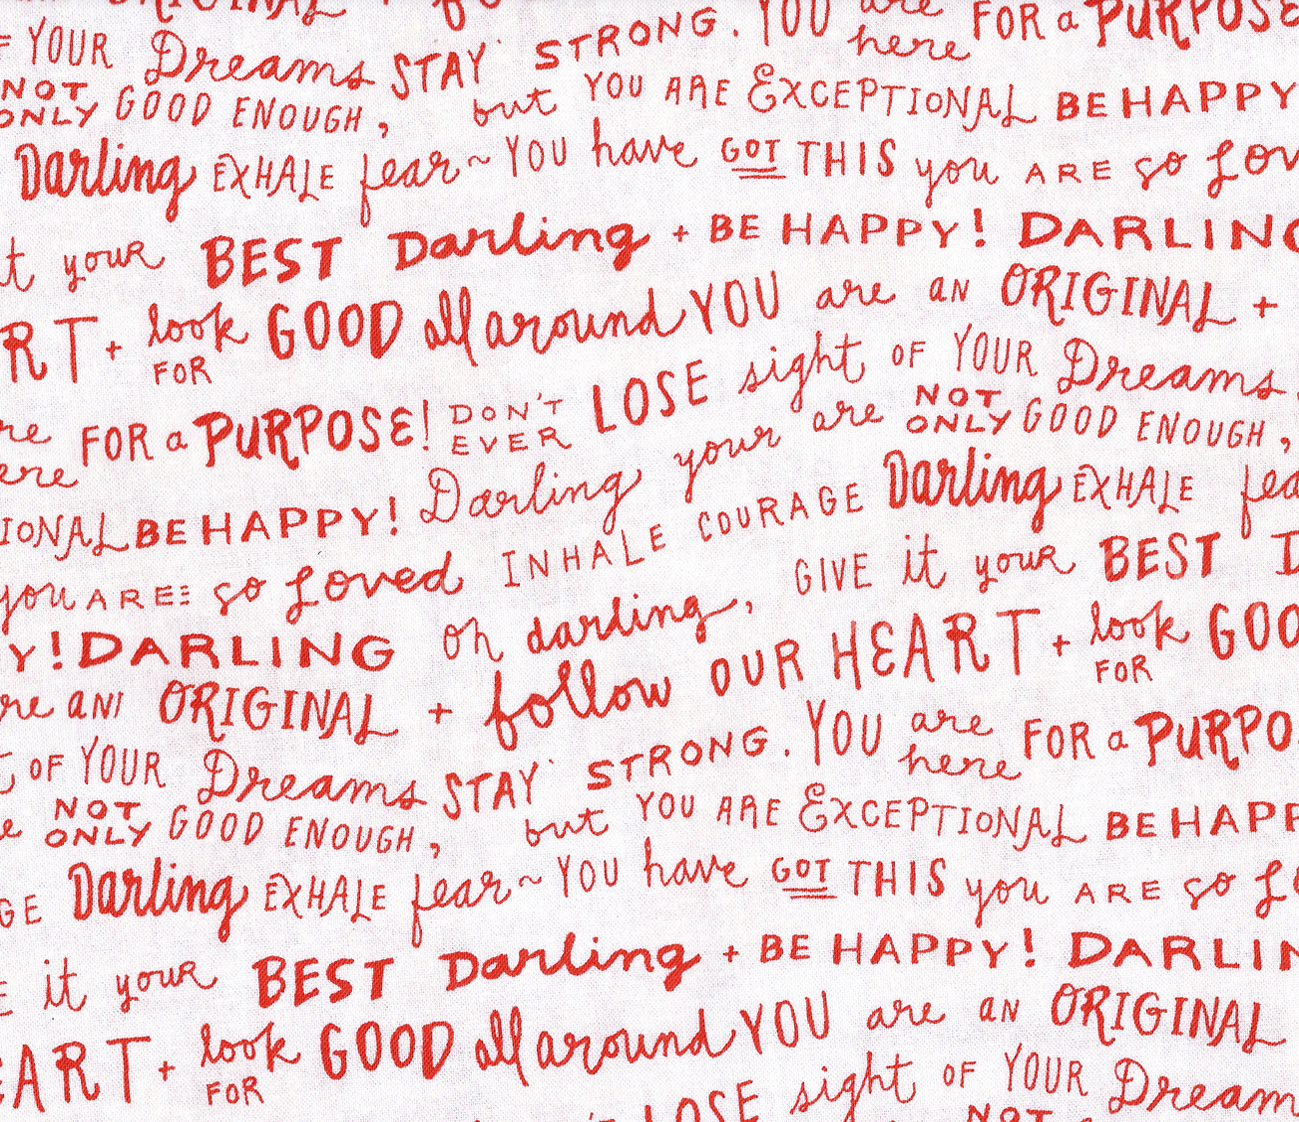 ORIGINAL +
OF YOUR Dreams STAY STRONG. YOU are here FOR a PURPOSE
NOT ONLY GOOD ENOUGH, but YOU ARE EXCEPTIONAL BE HAPPY
Darling EXHALE fear ~ YOU have GOT THIS you ARE so Lov
it your BEST Darling + BE HAPPY! DARLING
ART + look FOR GOOD all around YOU are an ORIGINAL +
are here FOR a PURPOSE! DON'T EVER LOSE sight OF YOUR Dreams
IONAL BE HAPPY! Darling your are NOT ONLY GOOD ENOUGH,
you ARE so Loved INHALE COURAGE Darling EXHALE fea
Y! DARLING oh darling, GIVE it your BEST D
are AN ORIGINAL + follow OUR HEART + look FOR GOO
t OF YOUR Dreams STAY STRONG. YOU are here FOR a PURPO
e NOT ONLY GOOD ENOUGH, but YOU ARE EXCEPTIONAL BE HAPP
GE Darling EXHALE fear ~ YOU have GOT THIS you ARE so Lo
E it your BEST Darling + BE HAPPY! DARLIN
EART + look FOR GOOD all around YOU are an ORIGINAL
LOSE sight OF YOUR Dream
NOT